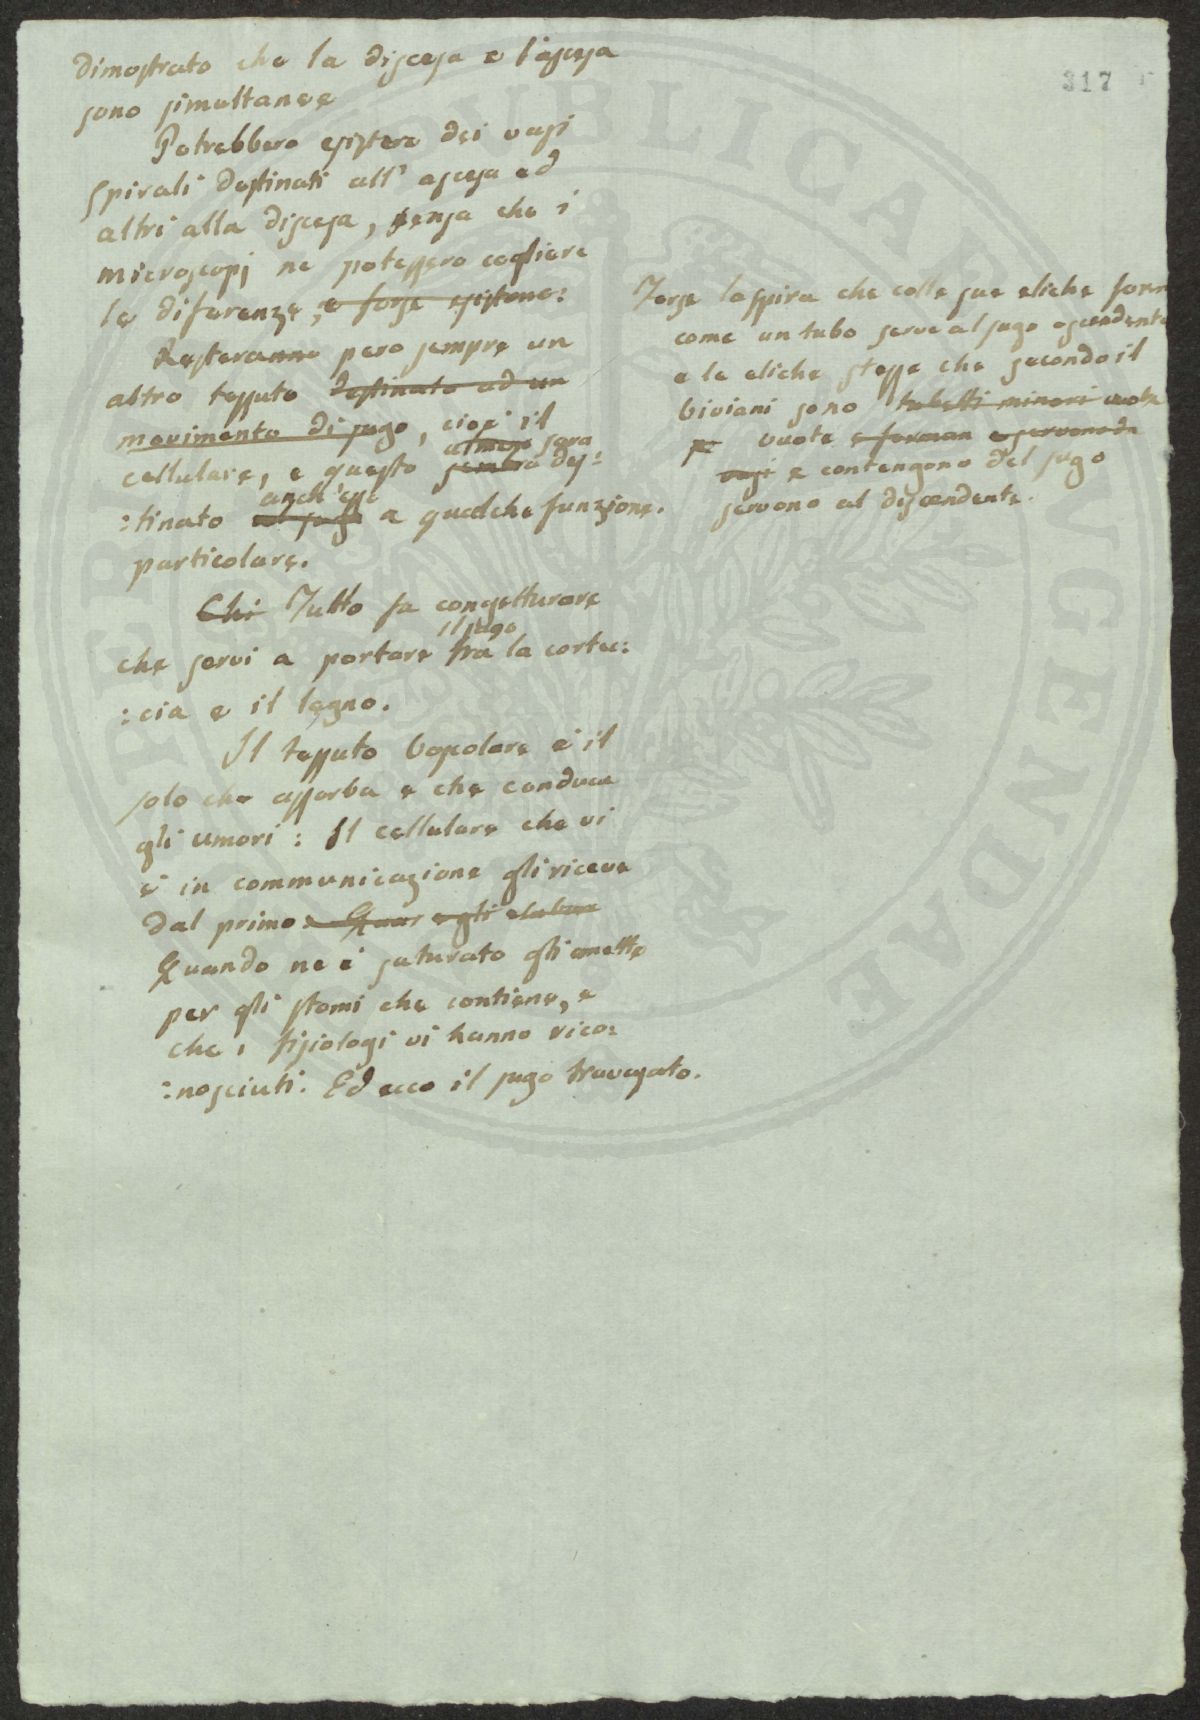 317
dimostrato che la discesa e l'ascesa
sono simultanee
Potrebbero esistere dei vasi
spirali destinati all' ascesa ed
altri alla discesa, senza che i
microscopj ne potessero cogliere
le diferenze, e forse esistono:
Resteranno pero sempre un
altro tessuto destinato ad un
movimento di sugo, cioè il
almeno sara
cellulare, e questo sembra des:
anch'esso
:tinato al sugo a qualche funzione.
particolare.
Chi Tutto fa congetturare
il sugo
che servi a portare fra la cortec:
:cia e il legno.
Il tessuto vascolare è il
solo che assorba e che conduca
gli umori: Il cellulare che vi
è in communicazione gli riceve
dal primo e Quar egli elabora
Quando ne è saturato gli emette
per gli stomi che contiene, e
che i fisiologi vi hanno rico:
:nosciuti. Ed ecco il sugo travasato.
Forse la spira che colle sue eliche form
come un tubo serve al sugo ascendente
e le eliche stesse che secondo il
Viviani sono tubetti minori vuote
vuote e forman e servono da
vasi e contengono del sugo
servono al discendente.
PUBLICA